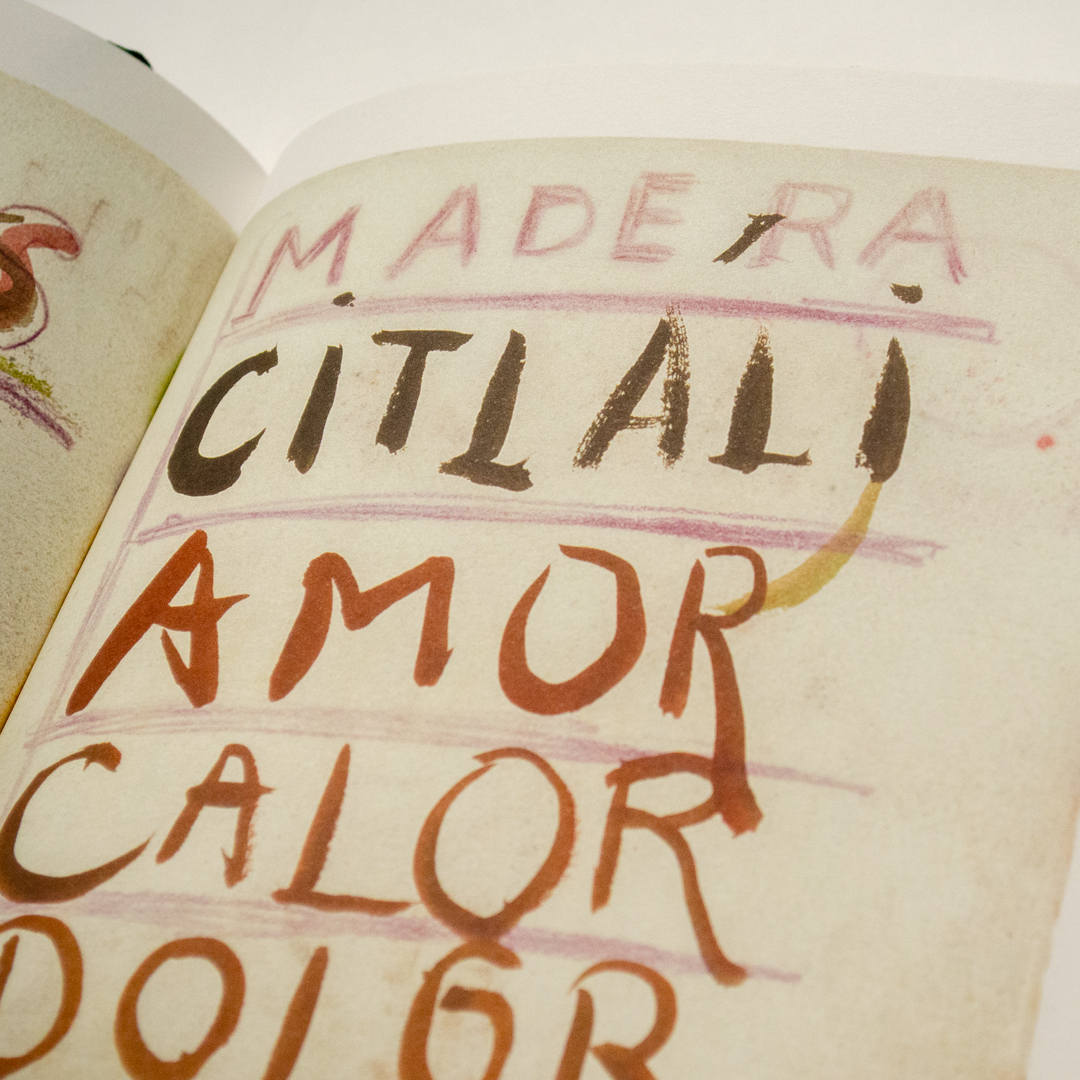 MADERA
CITLALI
AMOR
CALOR
DOLOR